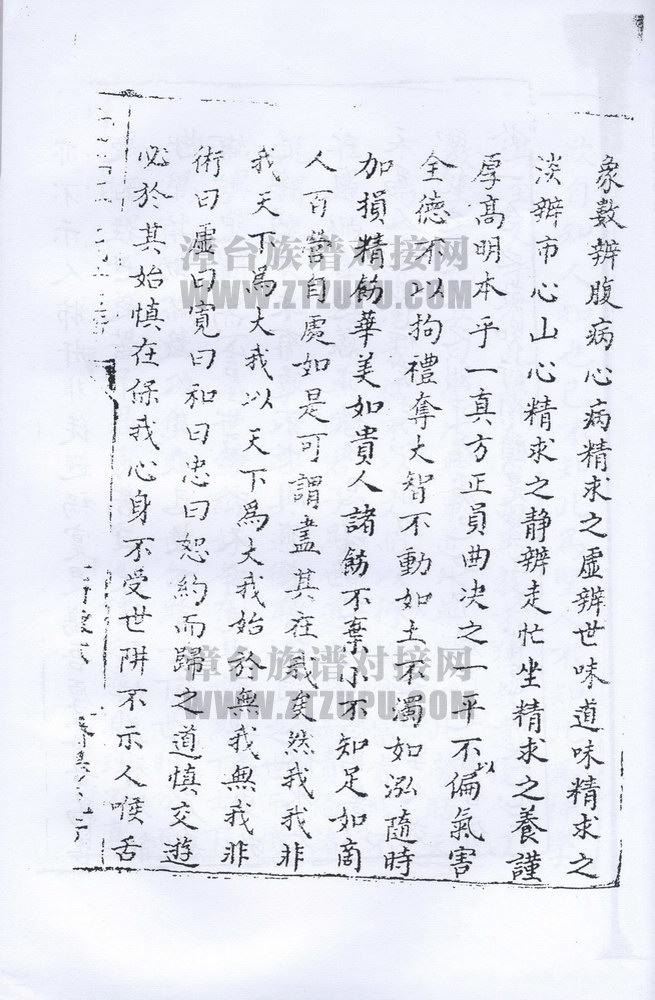 象數辨腹病心病精求之虛辨世味道味精求之
淡辨市心山心精求之靜辨走忙坐精求之養謹
厚高明本乎一真方正員曲決之一平不以偏氣害
全德不以拘禮奪大智不動如土不濁如泓隨時
加損精飭華美如貴人諸飭不棄小不知足如商
人百營自處如是可謂盡其在我矣然我我非
我天下為大我以天下為大我始於無我無我非
術曰虛曰寬曰和曰忠曰恕約而歸之道慎交遊
必於其始慎在保我心身不受世阱不示人喉舌
漳台族谱对接网
WWW.ZTZUPU.COM
漳台族谱对接网
WWW.ZTZUPU.COM